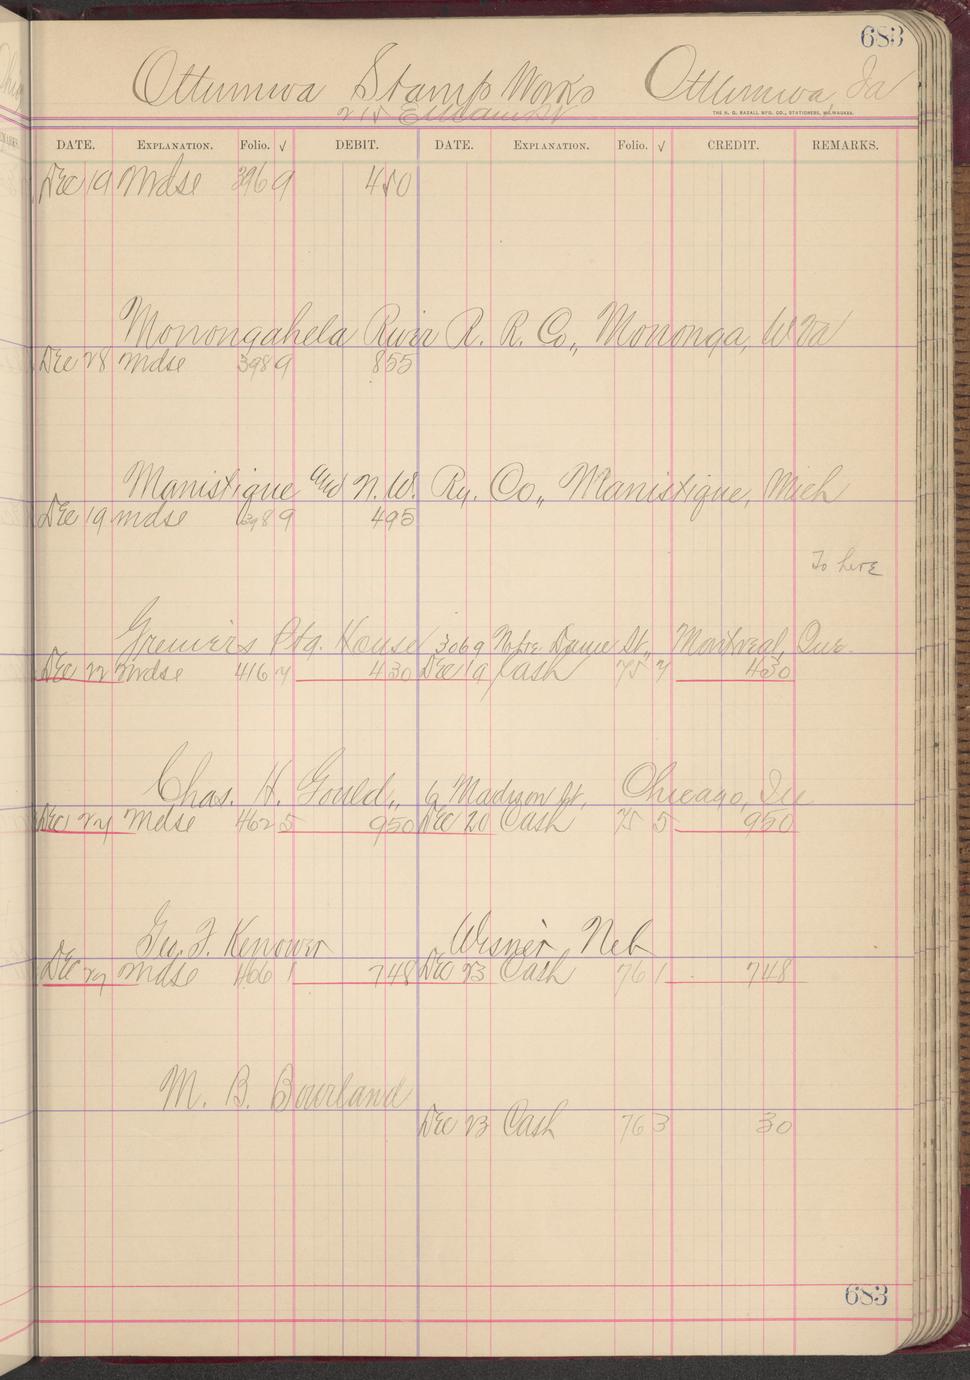 683
Ottumwa Stamp Works Ottumwa, Ia
215 E Main St
THE H. G. RAZALL MFG. CO., STATIONERS, MILWAUKEE.
DATE. EXPLANATION. FOLIO. √ DEBIT. DATE. EXPLANATION. FOLIO. √ CREDIT. REMARKS.
Dec 19 Mdse 396 9 450
Monongahela River R. R. Co., Mononga, W Va
Dec 28 Mdse 398 9 855
Manistique and N. W. Ry. Co., Manistique, Mich
Dec 19 mdse 398 9 495
To here
Greniers Ptg. House 3069 Notre Dame St., Montreal, Que.
Dec 22 Mdse 416 7 430 Dec 19 Cash 75 7 430
Chas. H. Gould,, 6 Madison St, Chicago, Ill
Dec 24 Mdse 462 5 950 Dec 20 Cash 75 5 950
Geo. F. Kenower Wisner Neb
Dec 27 Mdse 466 1 748 Dec 23 Cash 76 1 748
M. B. Bourland
Dec 23 Cash 76 3 30
683